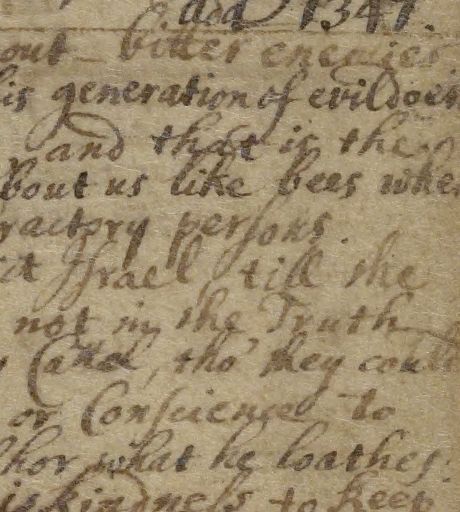 1341.
out bitter enemies
is generation of evildoers
and that is the
bout us like bees whe
ractory persons.
it Israel, till the
not in the Truth
Cand, tho' they could
or Conscience to
hor what he loathes:
is kindness to keep